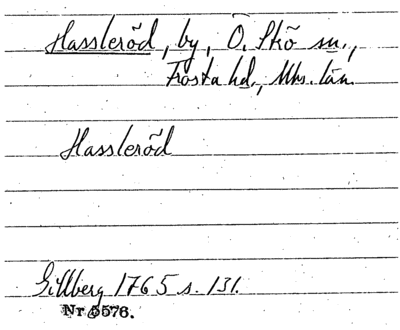 Hassleröd, by, Ö. Strö sn.,
Frosta hd., Mhs. län.
Hassleröd
Gillberg 1765 s. 131.
Nr 5576.